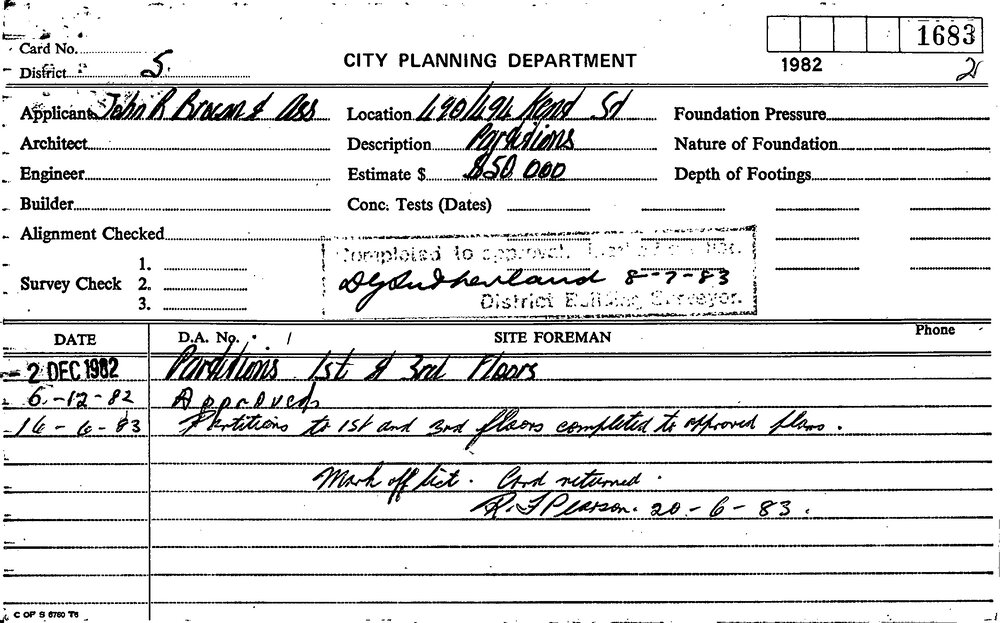 1683
Card No.
District S.
CITY PLANNING DEPARTMENT
1982
2
Applicant John R Brown & Ass Location 490/494 Kent St Foundation Pressure
Architect Description Partitions Nature of Foundation
Engineer Estimate $ $50 000 Depth of Footings
Builder Conc. Tests (Dates)
Alignment Checked
Completed to approval.
Survey Check 1.
2.
3.
DGSutherland 8-7-83
District Building Surveyor.
DATE D.A. No. SITE FOREMAN Phone
- 2 DEC 1982 Partitions 1st & 3rd Floors
6-12-82 Approved
16-6-83 Partitions to 1st and 3rd floors completed to approved plans.
Mark off list. Card returned.
R. F Pearson. 20-6-83.
C OF S 6760 T6